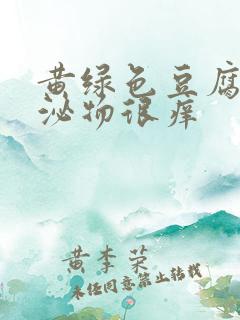 黄绿色豆腐
泌物很痒
黄李荣
未经同意禁止转载